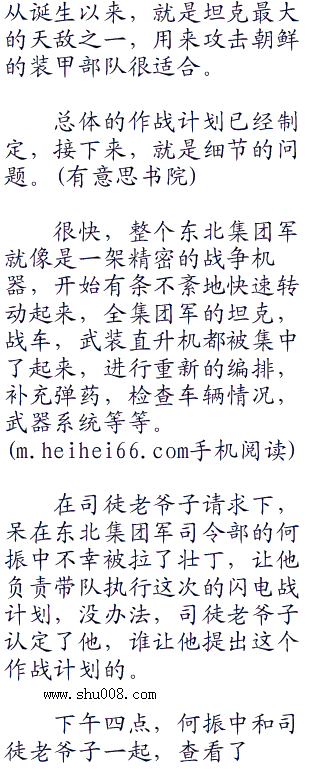 从诞生以来，就是坦克最大
的天敌之一，用来攻击朝鲜
的装甲部队很适合。
总体的作战计划已经制
定，接下来，就是细节的问
题。(有意思书院)
很快，整个东北集团军
就像是一架精密的战争机
器，开始有条不紊地快速转
动起来，全集团军的坦克，
战车，武装直升机都被集中
了起来，进行重新的编排，
补充弹药，检查车辆情况，
武器系统等等。
(m.heihei66.com手机阅读)
在司徒老爷子请求下，
呆在东北集团军司令部的何
振中不幸被拉了壮丁，让他
负责带队执行这次的闪电战
计划，没办法，司徒老爷子
认定了他，谁让他提出这个
作战计划的。
www.shu008.com
下午四点，何振中和司
徒老爷子一起，查看了